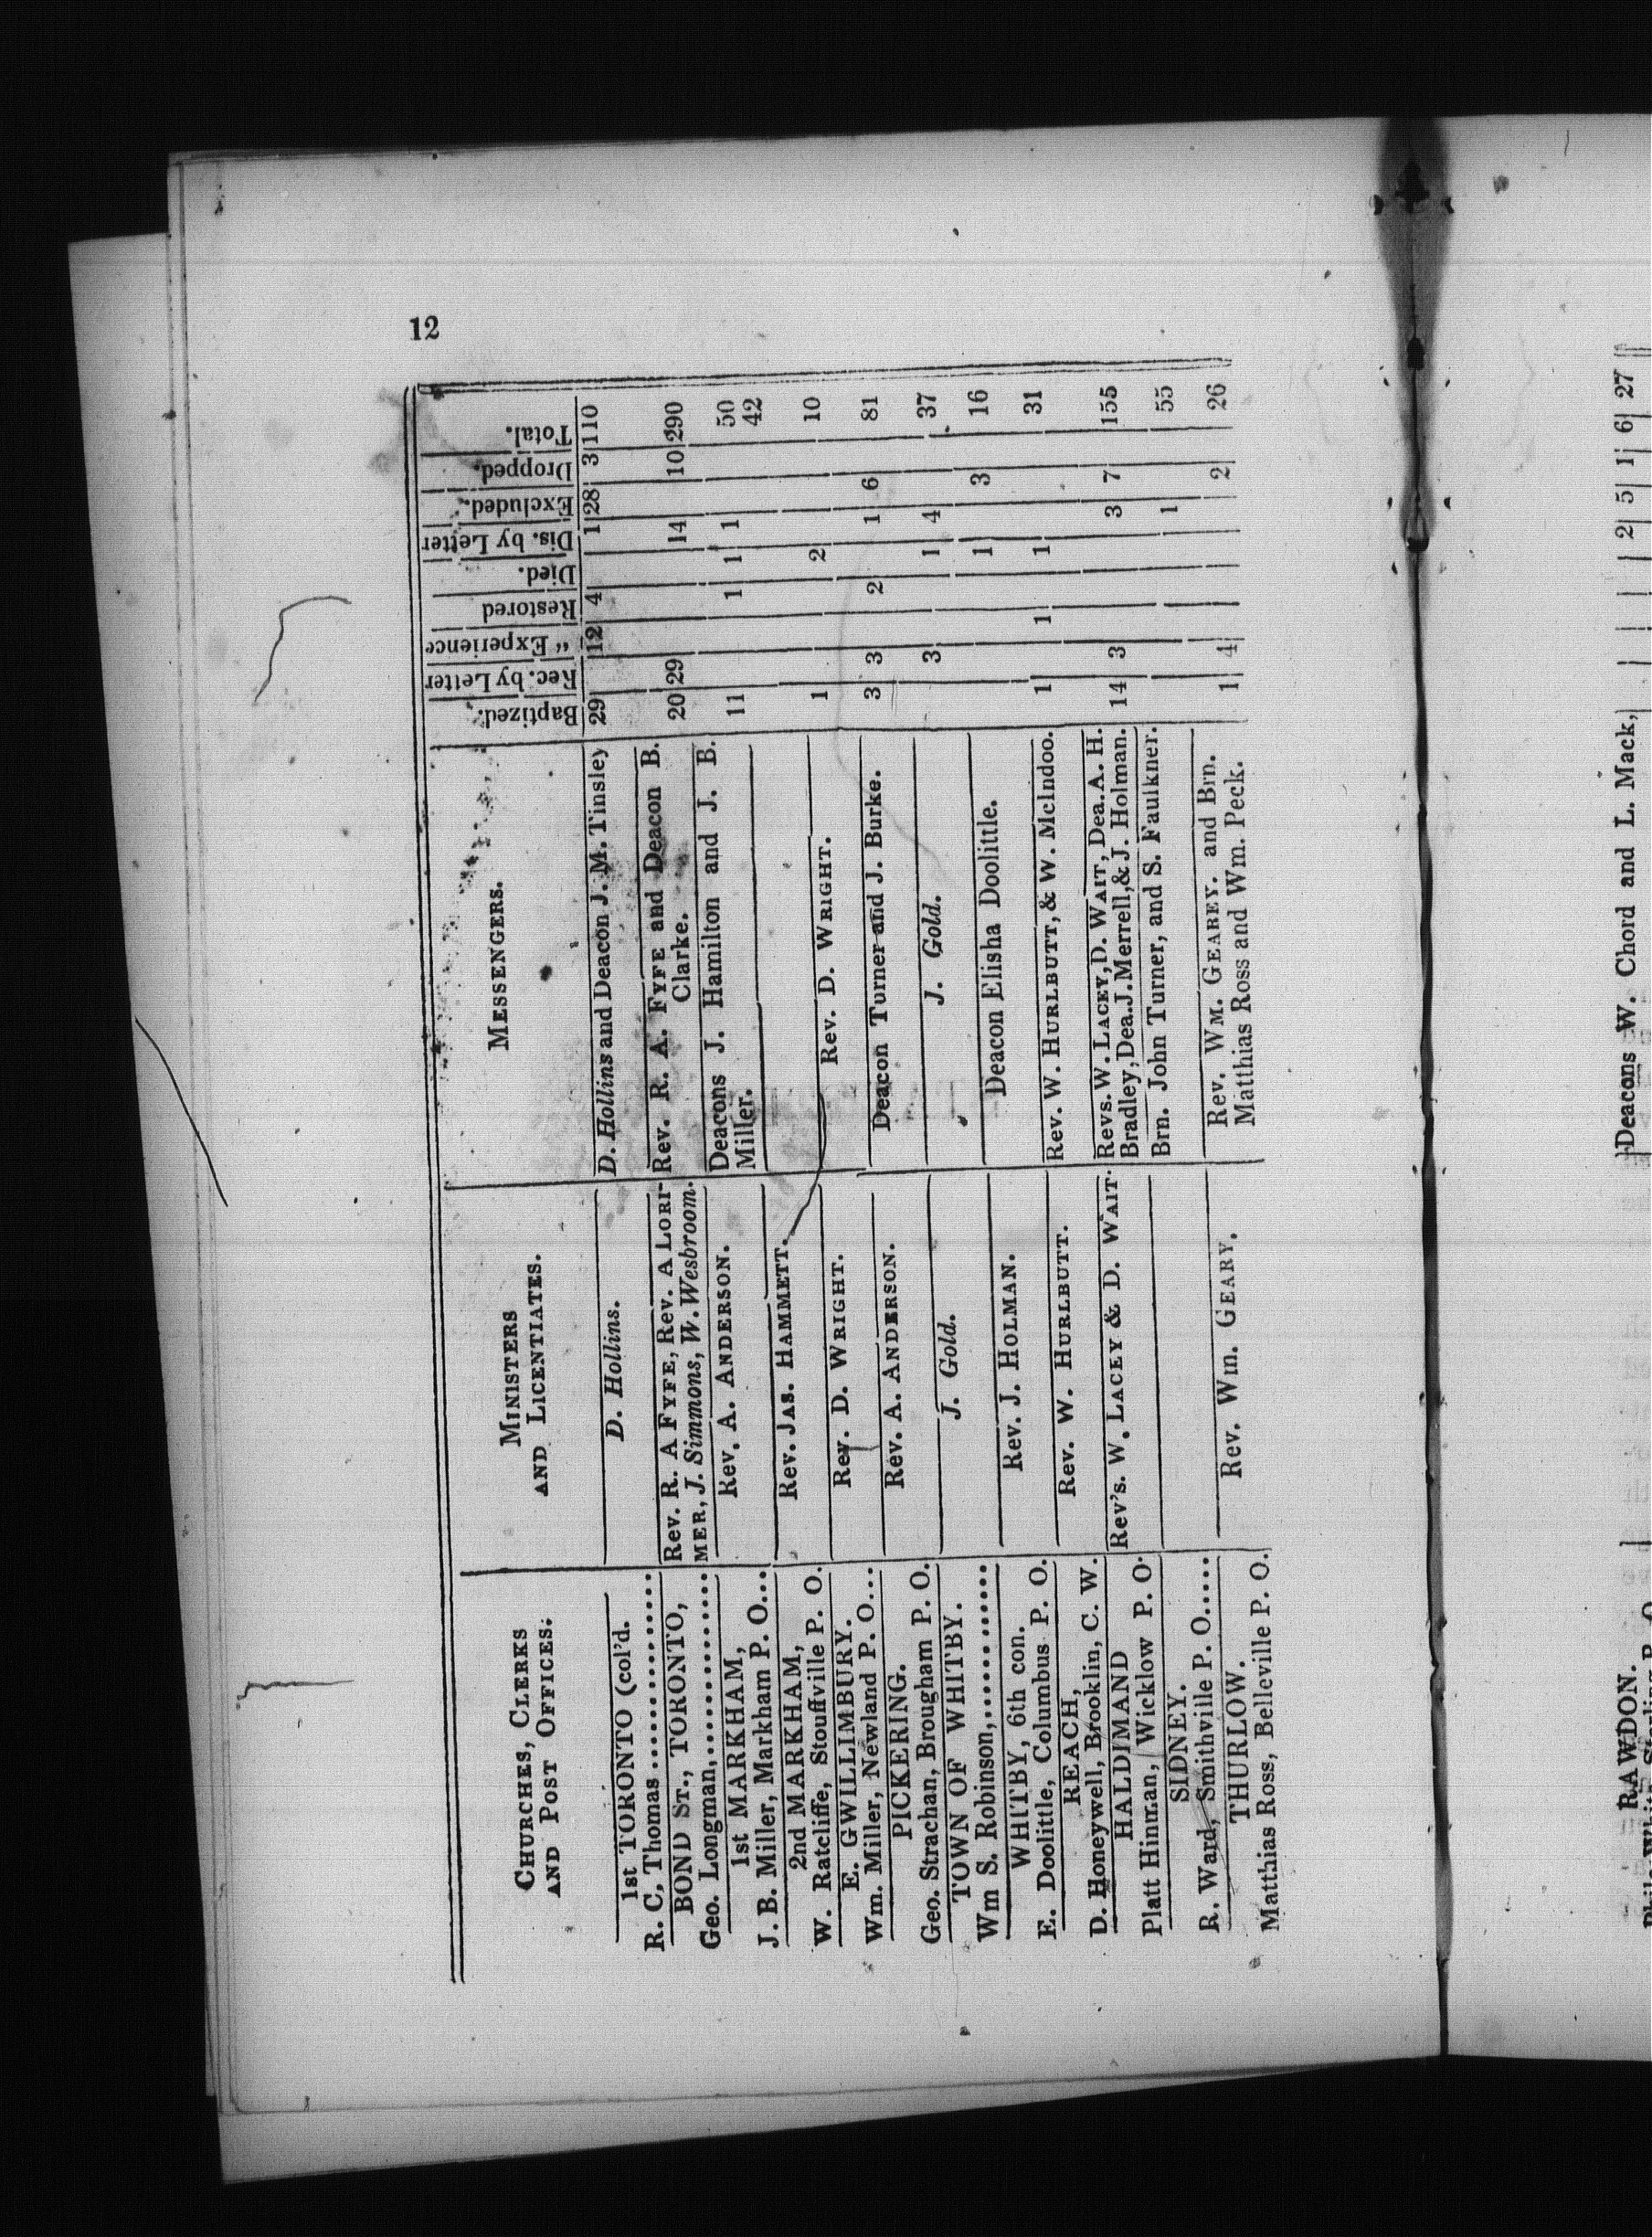 12
CHURCHES, CLERKS
AND POST OFFICES.
MINISTERS
AND LICENTIATES.
MESSENGERS.
Baptized.
Rec. by Letter
" Experience
Restored
Died.
Dis. by Letter
Excluded.
Dropped.
Total.
1st TORONTO (col'd.
R. C, Thomas ................
D. Hollins.
D. Hollins and Deacon J. M. Tinsley
29 12 4 1 28 3 110
BOND ST., TORONTO,
Geo. Longman,................
Rev. R. A FYFE, Rev. A LORI-
MER, J. Simmons, W. Wesbroom.
Rev. R. A. FYFE and Deacon B.
Clarke.
20 29 14 10 290
1st MARKHAM,
J. B. Miller, Markham P. O...
Rev. A. ANDERSON.
Deacons J. Hamilton and J. B.
Miller.
11 1 1 1 50
2nd MARKHAM,
W. Ratcliffe, Stouffville P. O.
Rev. JAS. HAMMETT.
42
E. GWILLIMBURY.
Wm. Miller, Newland P. O...
Rev. D. WRIGHT.
Rev. D. WRIGHT.
1 2 10
PICKERING.
Geo. Strachan, Brougham P. O.
Rev. A. ANDERSON.
Deacon Turner and J. Burke.
3 3 2 1 6 81
TOWN OF WHITBY.
Wm S. Robinson,...........
J. Gold.
J. Gold.
3 1 4 37
WHITBY, 6th con.
E. Doolittle, Columbus P. O.
Rev. J. HOLMAN.
Deacon Elisha Doolittle.
1 3 16
REACH,
D. Honeywell, Brooklin, C. W.
Rev. W. HURLBUTT.
Rev. W. HURLBUTT, & W. McIndoo.
1 1 1 31
HALDIMAND
Platt Hinman, Wicklow P. O.
Rev's. W. LACEY & D. WAIT.
Revs. W. LACEY, D. WAIT, Dea. A. H.
Bradley, Dea. J. Merrell, & J. Holman.
14 3 3 7 155
SIDNEY.
R. Ward, Smithville P. O.....
Brn. John Turner, and S. Faulkner.
1 55
THURLOW.
Matthias Ross, Belleville P. O.
Rev. Wm. GEARY.
Rev. WM. GEAREY. and Brn.
Matthias Ross and Wm. Peck.
1 4 2 26
RAWDON.
Deacons W. Chord and L. Mack,
2 5 1 6 27